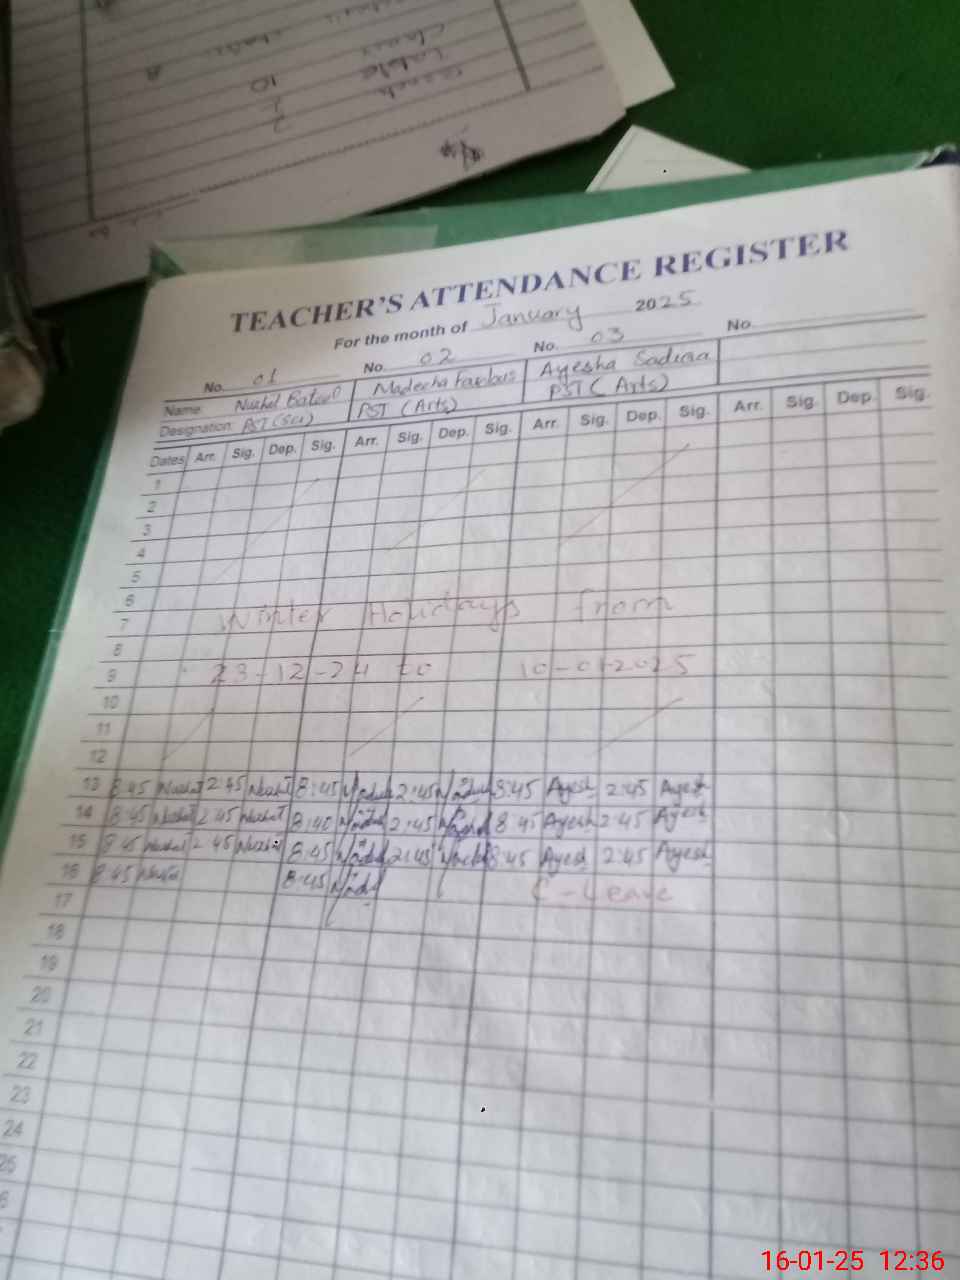 TEACHER'S ATTENDANCE REGISTER
For the month of January 2025
No. 01 No. 02 No. 03 No.
Name: Nuzhat Batool Madeeha Ayesha Sadiqa
Designation: PST (Sci) PST (Arts) PST (Arts)
Dates Arr. Sig. Dep. Sig. Arr. Sig. Dep. Sig. Arr. Sig. Dep. Sig. Arr. Sig. Dep. Sig.
1
2
3
4
5
6
7 Winter Holidays from
8
9 23-12-24 to 10-01-2025
10
11
12
13 8:45 Nuzhat 2:45 Nuzhat 8:45 2:45 8:45 Ayesh 2:45 Ayesh
14 8:45 Nuzhat 2:45 Nuzhat 8:40 2:45 8:45 Ayesh 2:45 Ayesh
15 8:45 Nuzhat 2:45 Nuzhat 8:45 2:45 8:45 Ayesh 2:45 Ayesh
16 8:45 Nuzhat 8:45 C-Leave
17
18
19
20
21
22
23
24
16-01-25 12:36